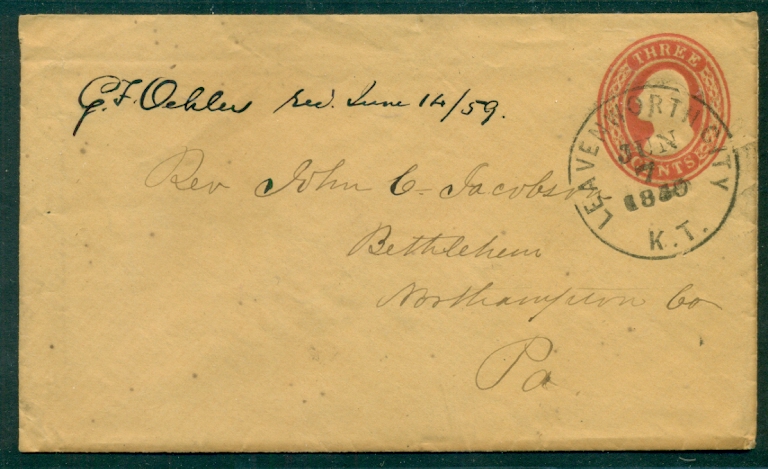 THREE
CENTS
LEAVENWORTH CITY
JUN
K. T.
G. F. Oehler recd. June 14/59.
Rev John C. Jacobson
Bethlehem
Northampton Co
Pa